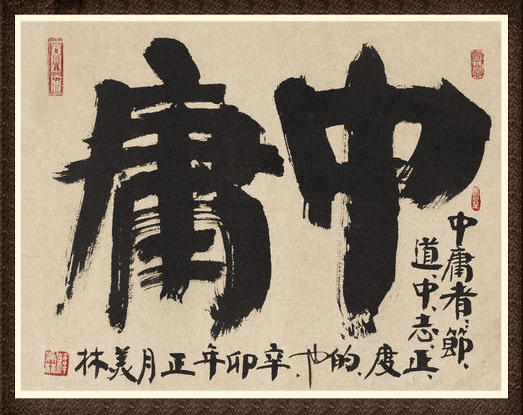 中庸
中庸者、節、
道、中、志正、
度、的、也、辛卯年正月美林